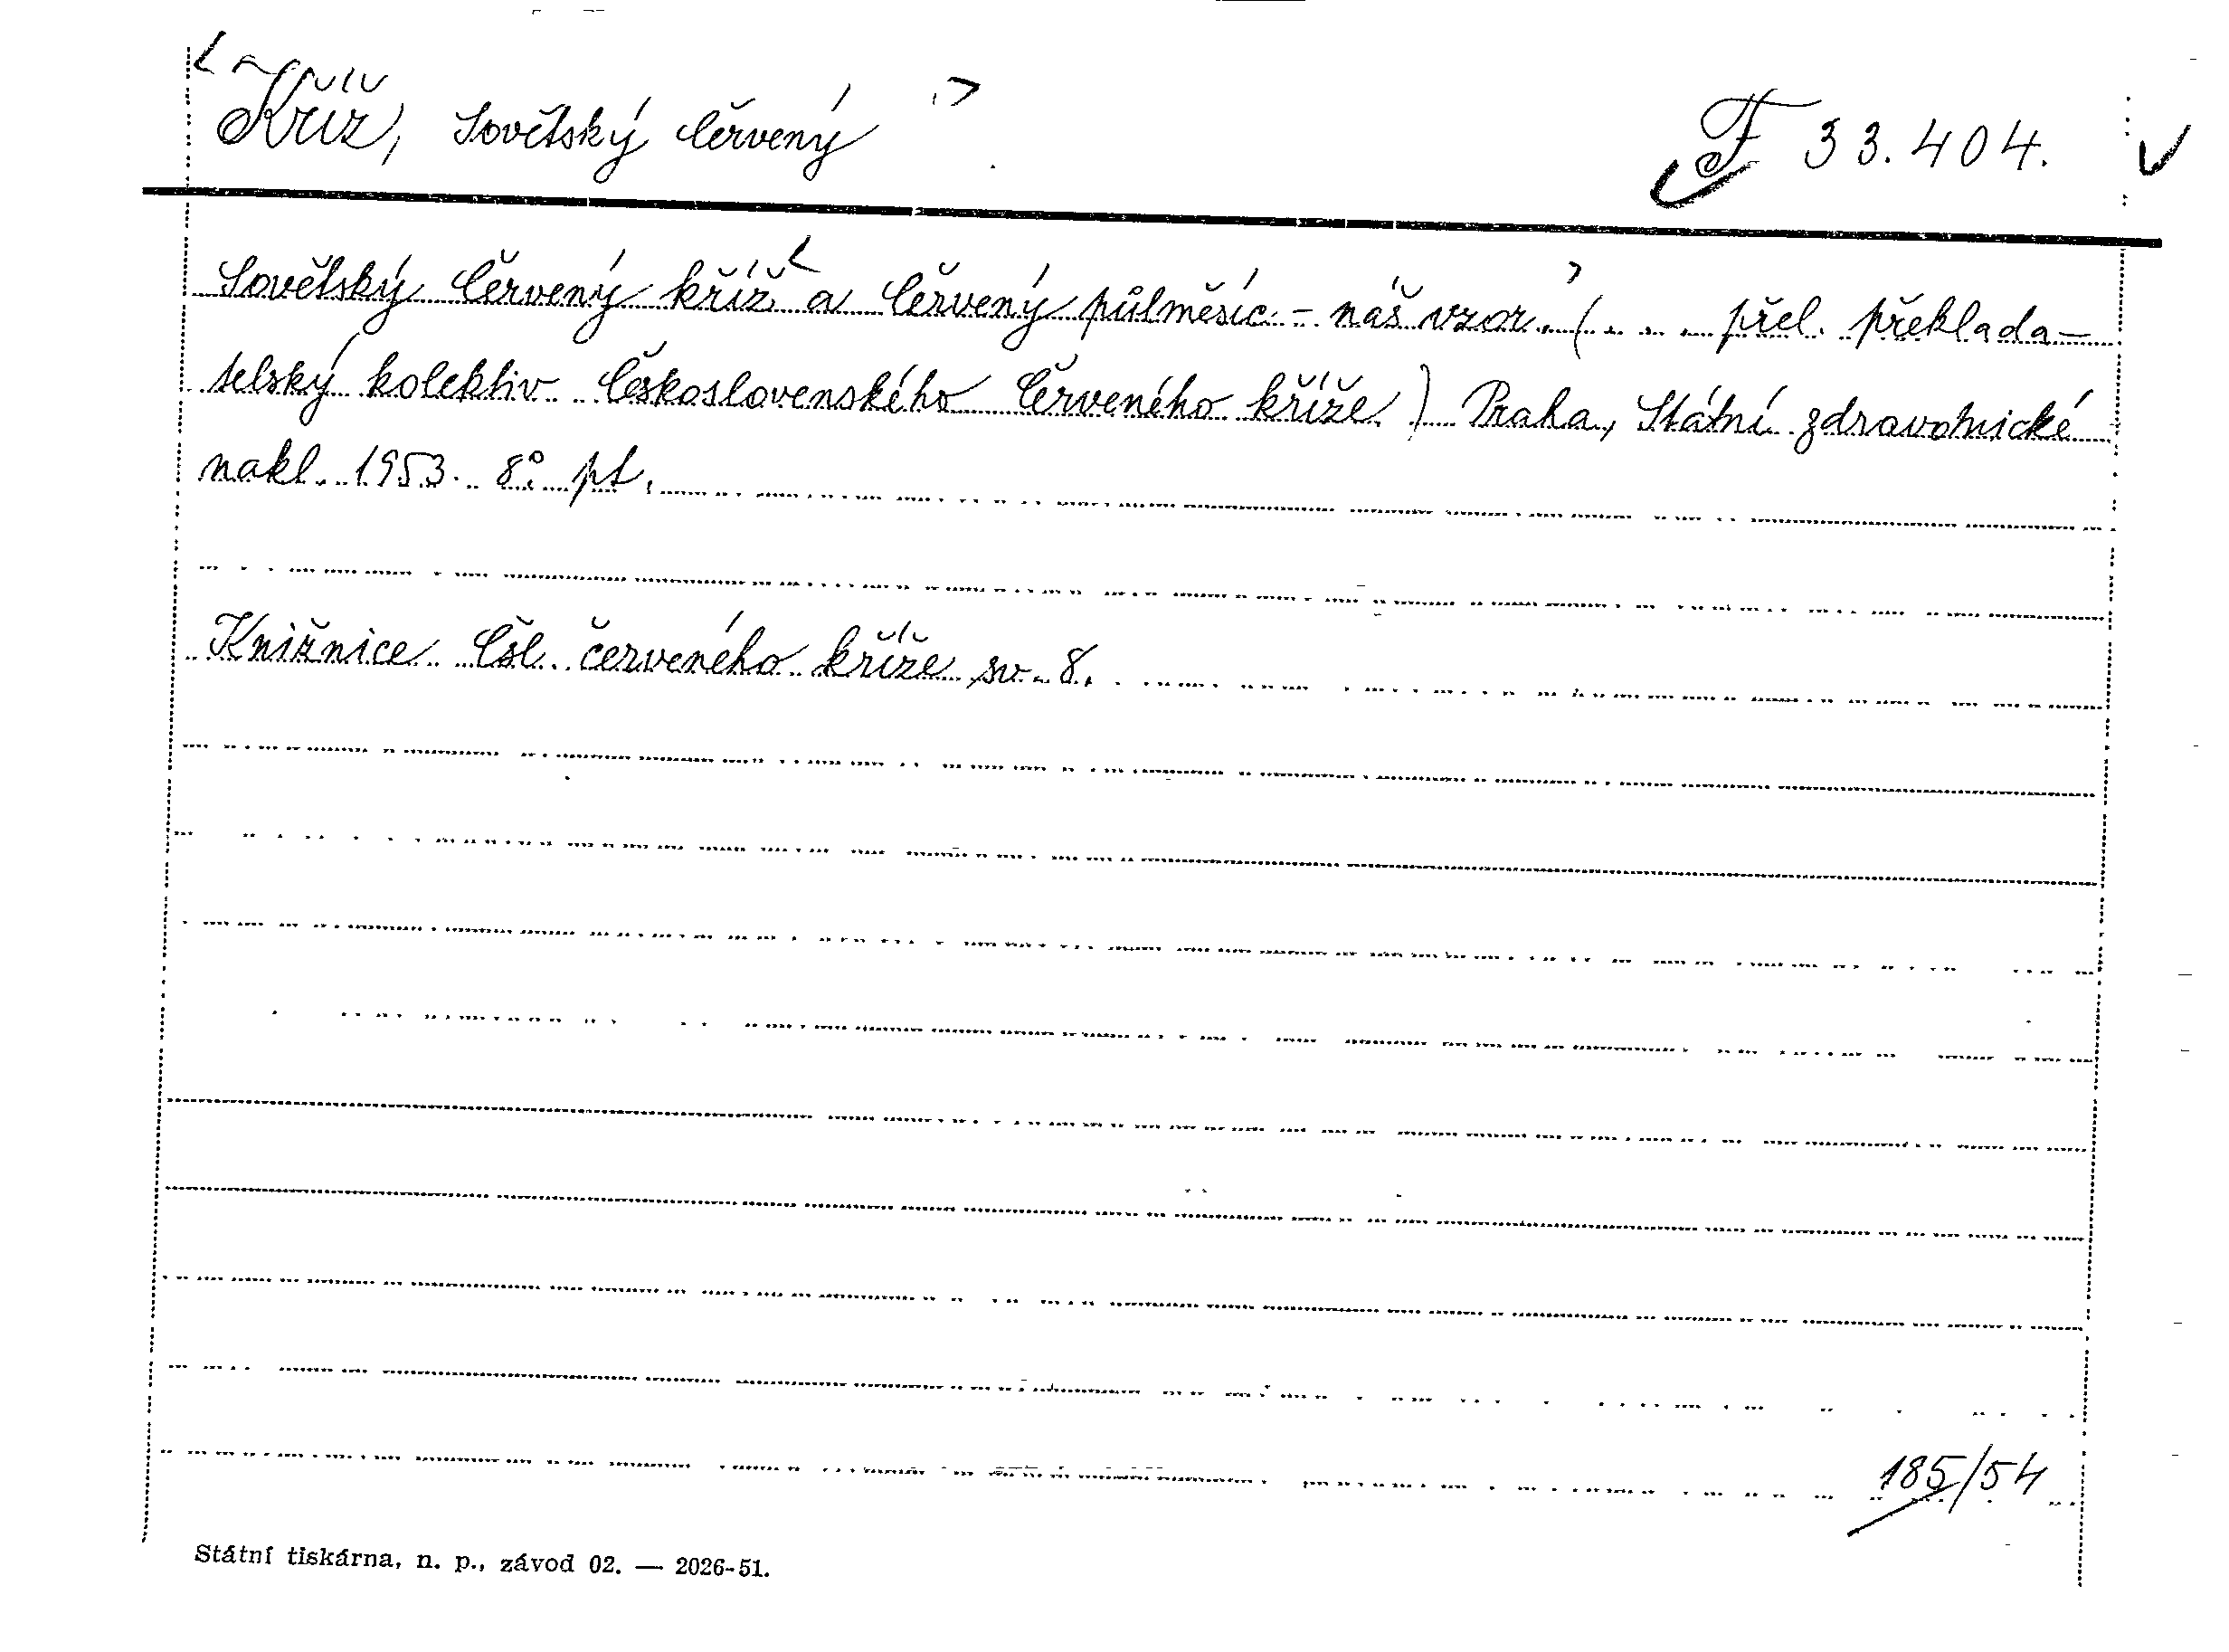 Kříž, Sovětský Červený F 33.404.
Sovětský Červený kříž a Červený půlměsíc - náš vzor. (... přel. překlada-
telský kolektiv Československého Červeného kříže) Praha, Státní zdravotnické
nakl. 1953. 8° pt.
Knižnice Čsl. červeného kříže sv. 8.
185/54
Státní tiskárna, n. p., závod 02. — 2026-51.